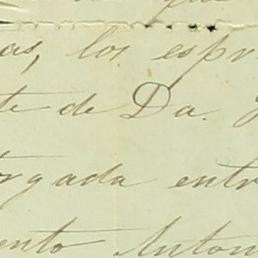 as, los espr
te de Da.
rgada entr
ento Anton